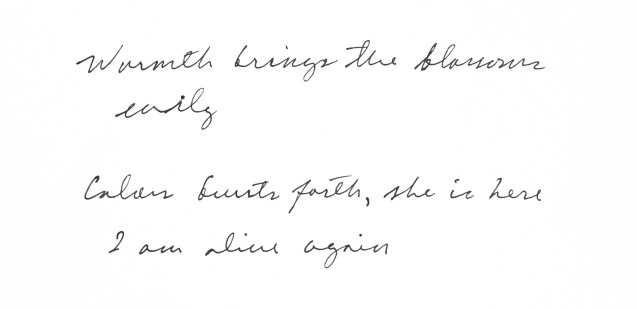 Warmth brings the blossoms
early
Colors bursts forth, she is here
I am alive again